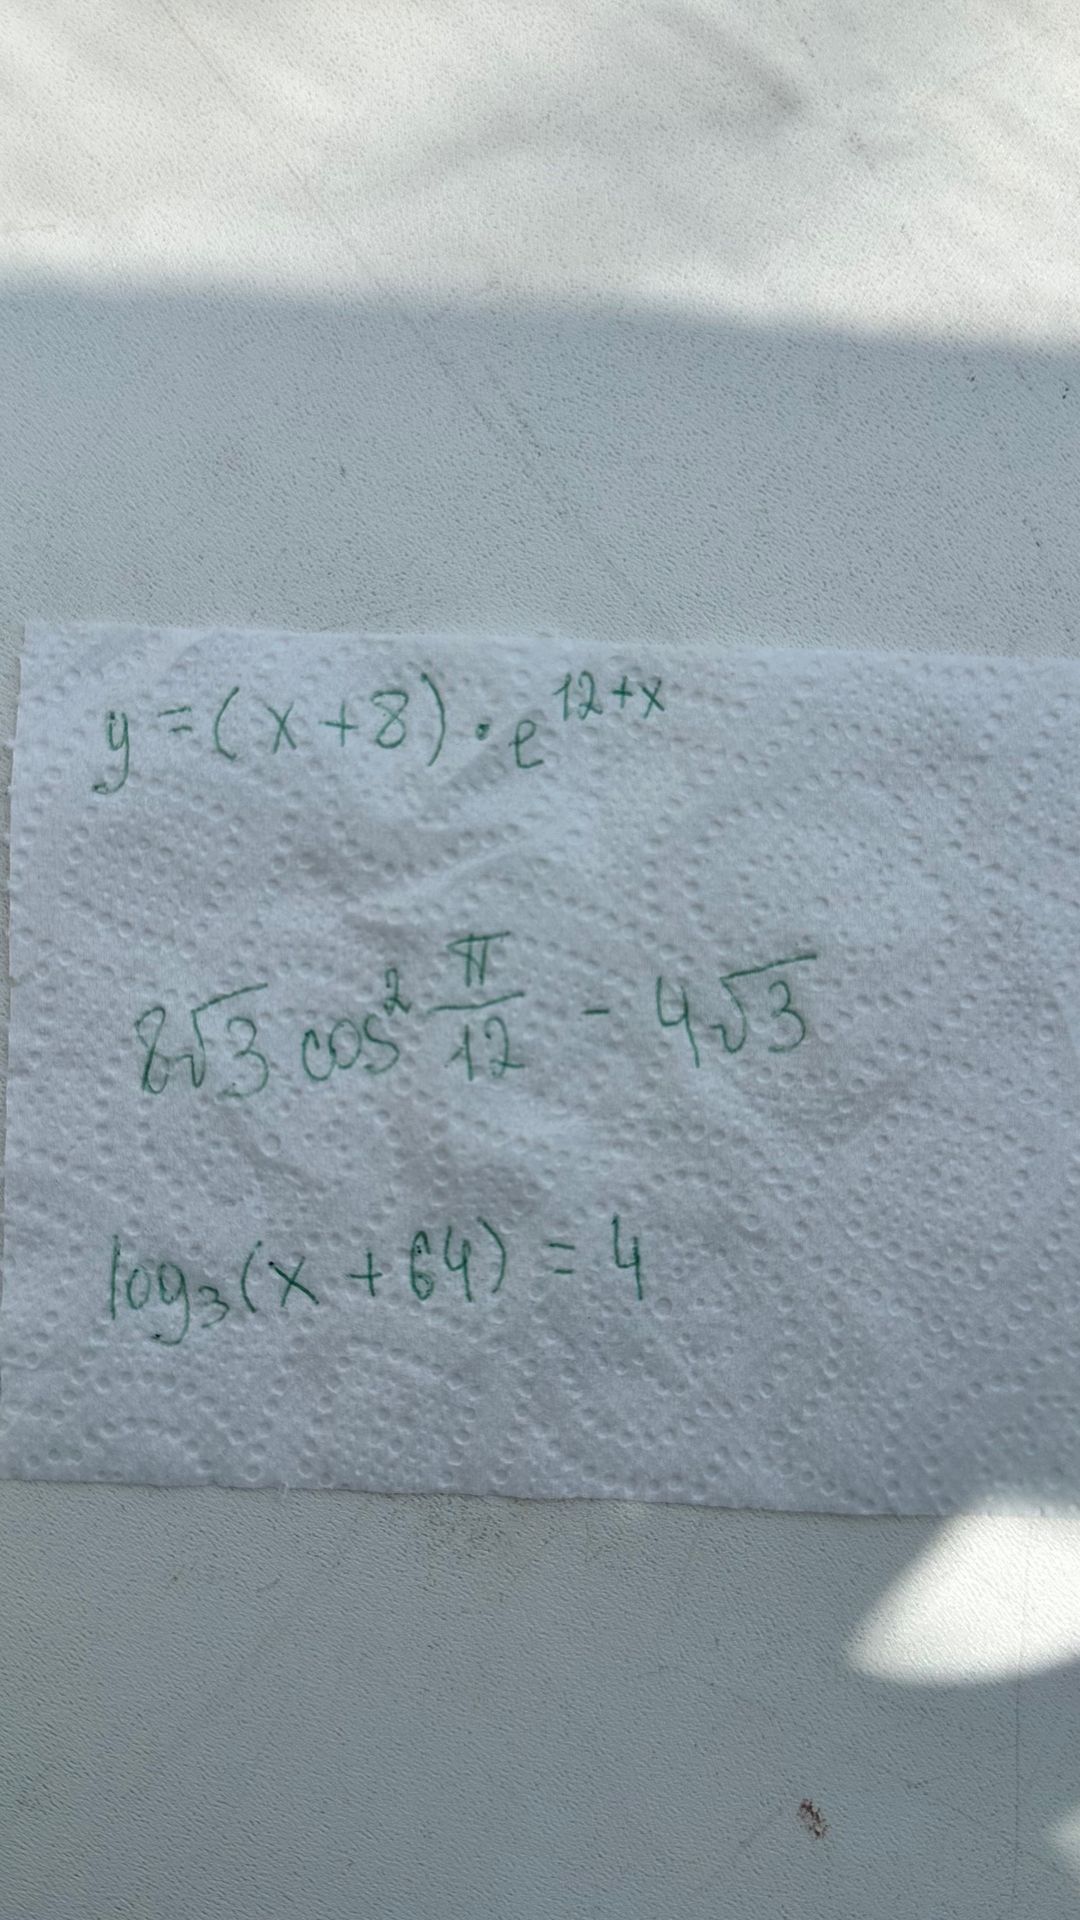 y = (x + 8) · e^(12+x)
8√3 cos² π/12 - 4√3
log₃(x + 64) = 4